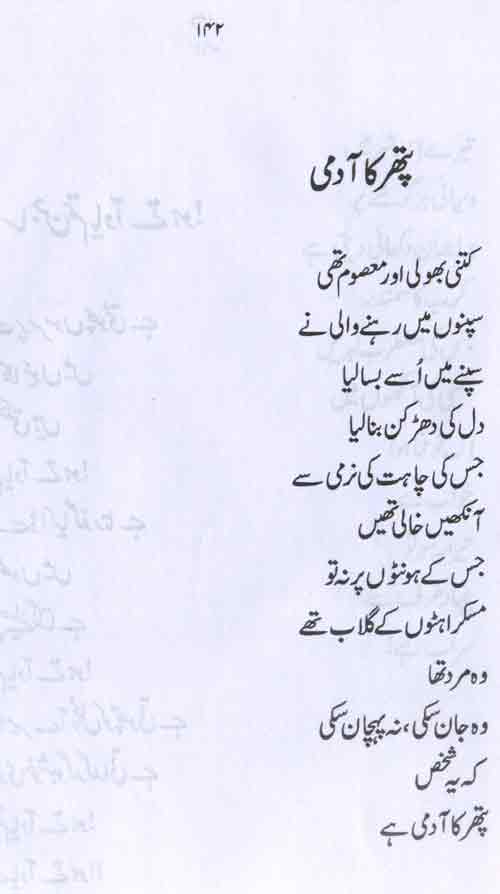 ۱۴۲
پتھر کا آدمی
کتنی بھولی اور معصوم تھی
سپنوں میں رہنے والی نے
سپنے میں اُسے بسا لیا
دل کی دھڑکن بنا لیا
جس کی چاہت کی نرمی سے
آنکھیں خالی تھیں
جس کے ہونٹوں پر نہ تو
مسکراہٹوں کے گلاب تھے
وہ مرد تھا
وہ جان سکی، نہ پہچان سکی
کہ یہ شخص
پتھر کا آدمی ہے